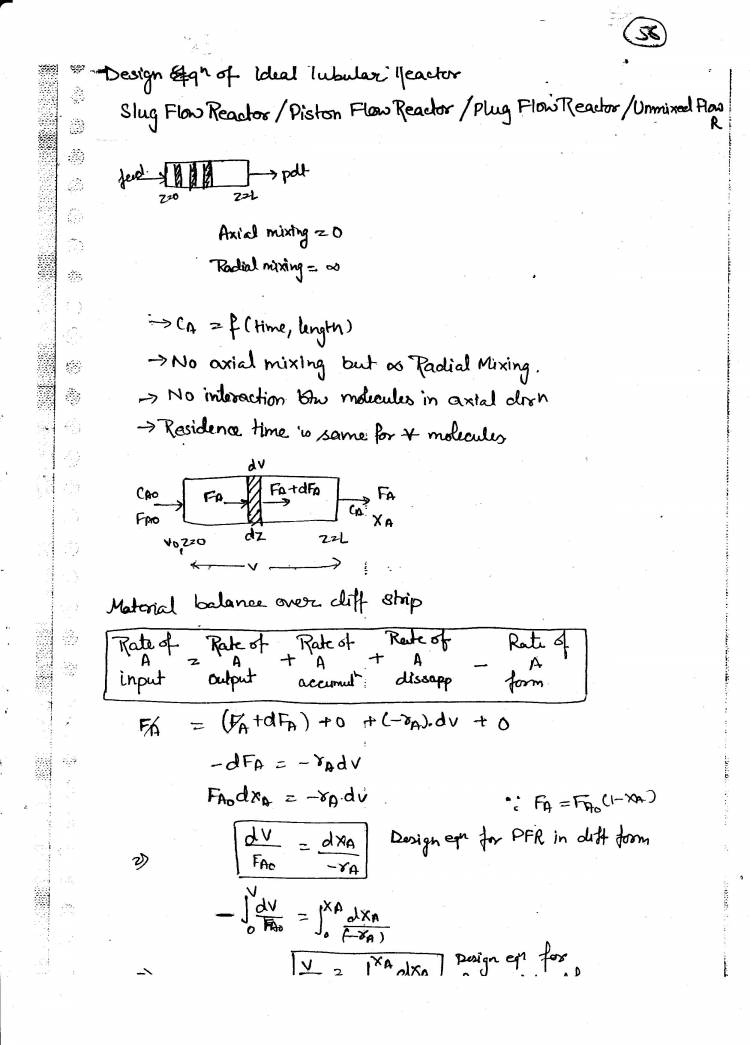 56
Design Eqⁿ of Ideal Tubular Reactor
Slug Flow Reactor / Piston Flow Reactor / Plug Flow Reactor / Unmixed Flow
R
feed → pdt
z=0 z=L
Axial mixing = 0
Radial mixing = ∞
→ CA = f (time, length)
→ No axial mixing but ∞ Radial Mixing.
→ No interaction b/w molecules in axial dirn
→ Residence time is same for ∀ molecules
dv
CA0 FA FA+dFA FA
FA0 CA XA
v0, z=0 dz z=L
← v →
Material balance over diff strip
Rate of A input = Rate of A output + Rate of A accumulⁿ + Rate of A dissapp − Rate of A form
FA = (FA + dFA) + 0 + (-rA).dv + 0
-dFA = -rA dv
FA0 dXA = -rA.dv ∵ FA = FA0 (1-XA)
2) dV/FA0 = dXA/-rA Design eqn for PFR in diff form
- ∫₀^V dV/FA0 = ∫₀^XA dXA/(-rA)
→ V = ∫^XA dXA Design eqn for